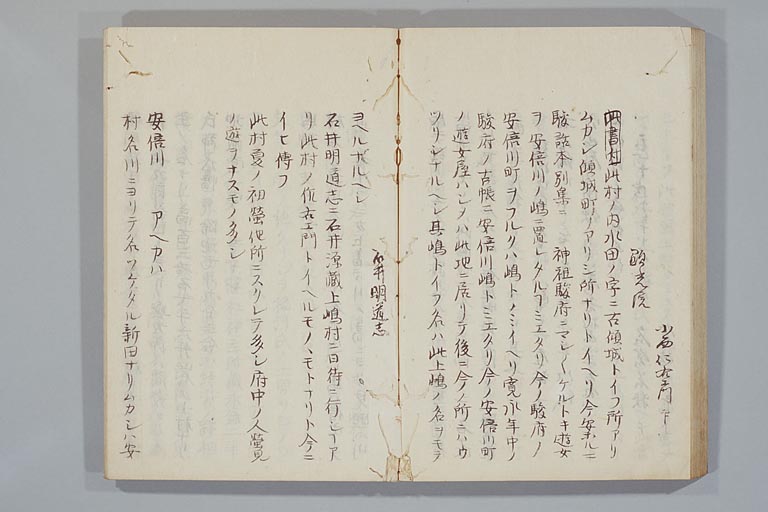 小西仁右衛門下
政光院
此書付此村ノ内水田ノ字ニ古傾城トイフ所アリ
ムカシ傾城町ノアリシ所ナリトイヘリ今安スルニ
駿話本別集ニ 神祖駿府ニマシ〱ケルトキ遊女
ヲ安倍川ノ嶋ニ置レタルヿミエタリ今ノ駿府ノ
安倍川町ヲフルクハ嶋トノミイヘリ寛永年中ノ
駿府ノ古帳ニ安倍川嶋トミエタリ今ノ安倍川町
ノ遊女屋ハシメハ此地ニ居リテ後ニ今ノ所ニハウ
ツリシナルヘシ其嶋トイフ名ハ此上嶋ノ名ヲモテ
ヨヘルナルヘシ
石井明道志
石井明道志ニ石井源蔵上嶋村ニ日待ニ行シヿア
リ此村ノ作右エ門トイヘルモノヽモトナリト今ニ
イヒ傳フ
此村夏ノ初螢他所ニスクレテ多シ府中ノ人螢見
ノ遊ヲナスモノ多シ
安倍川 アヘカハ
村名川ニヨリテ名ツケタル新田ナリムカシハ安